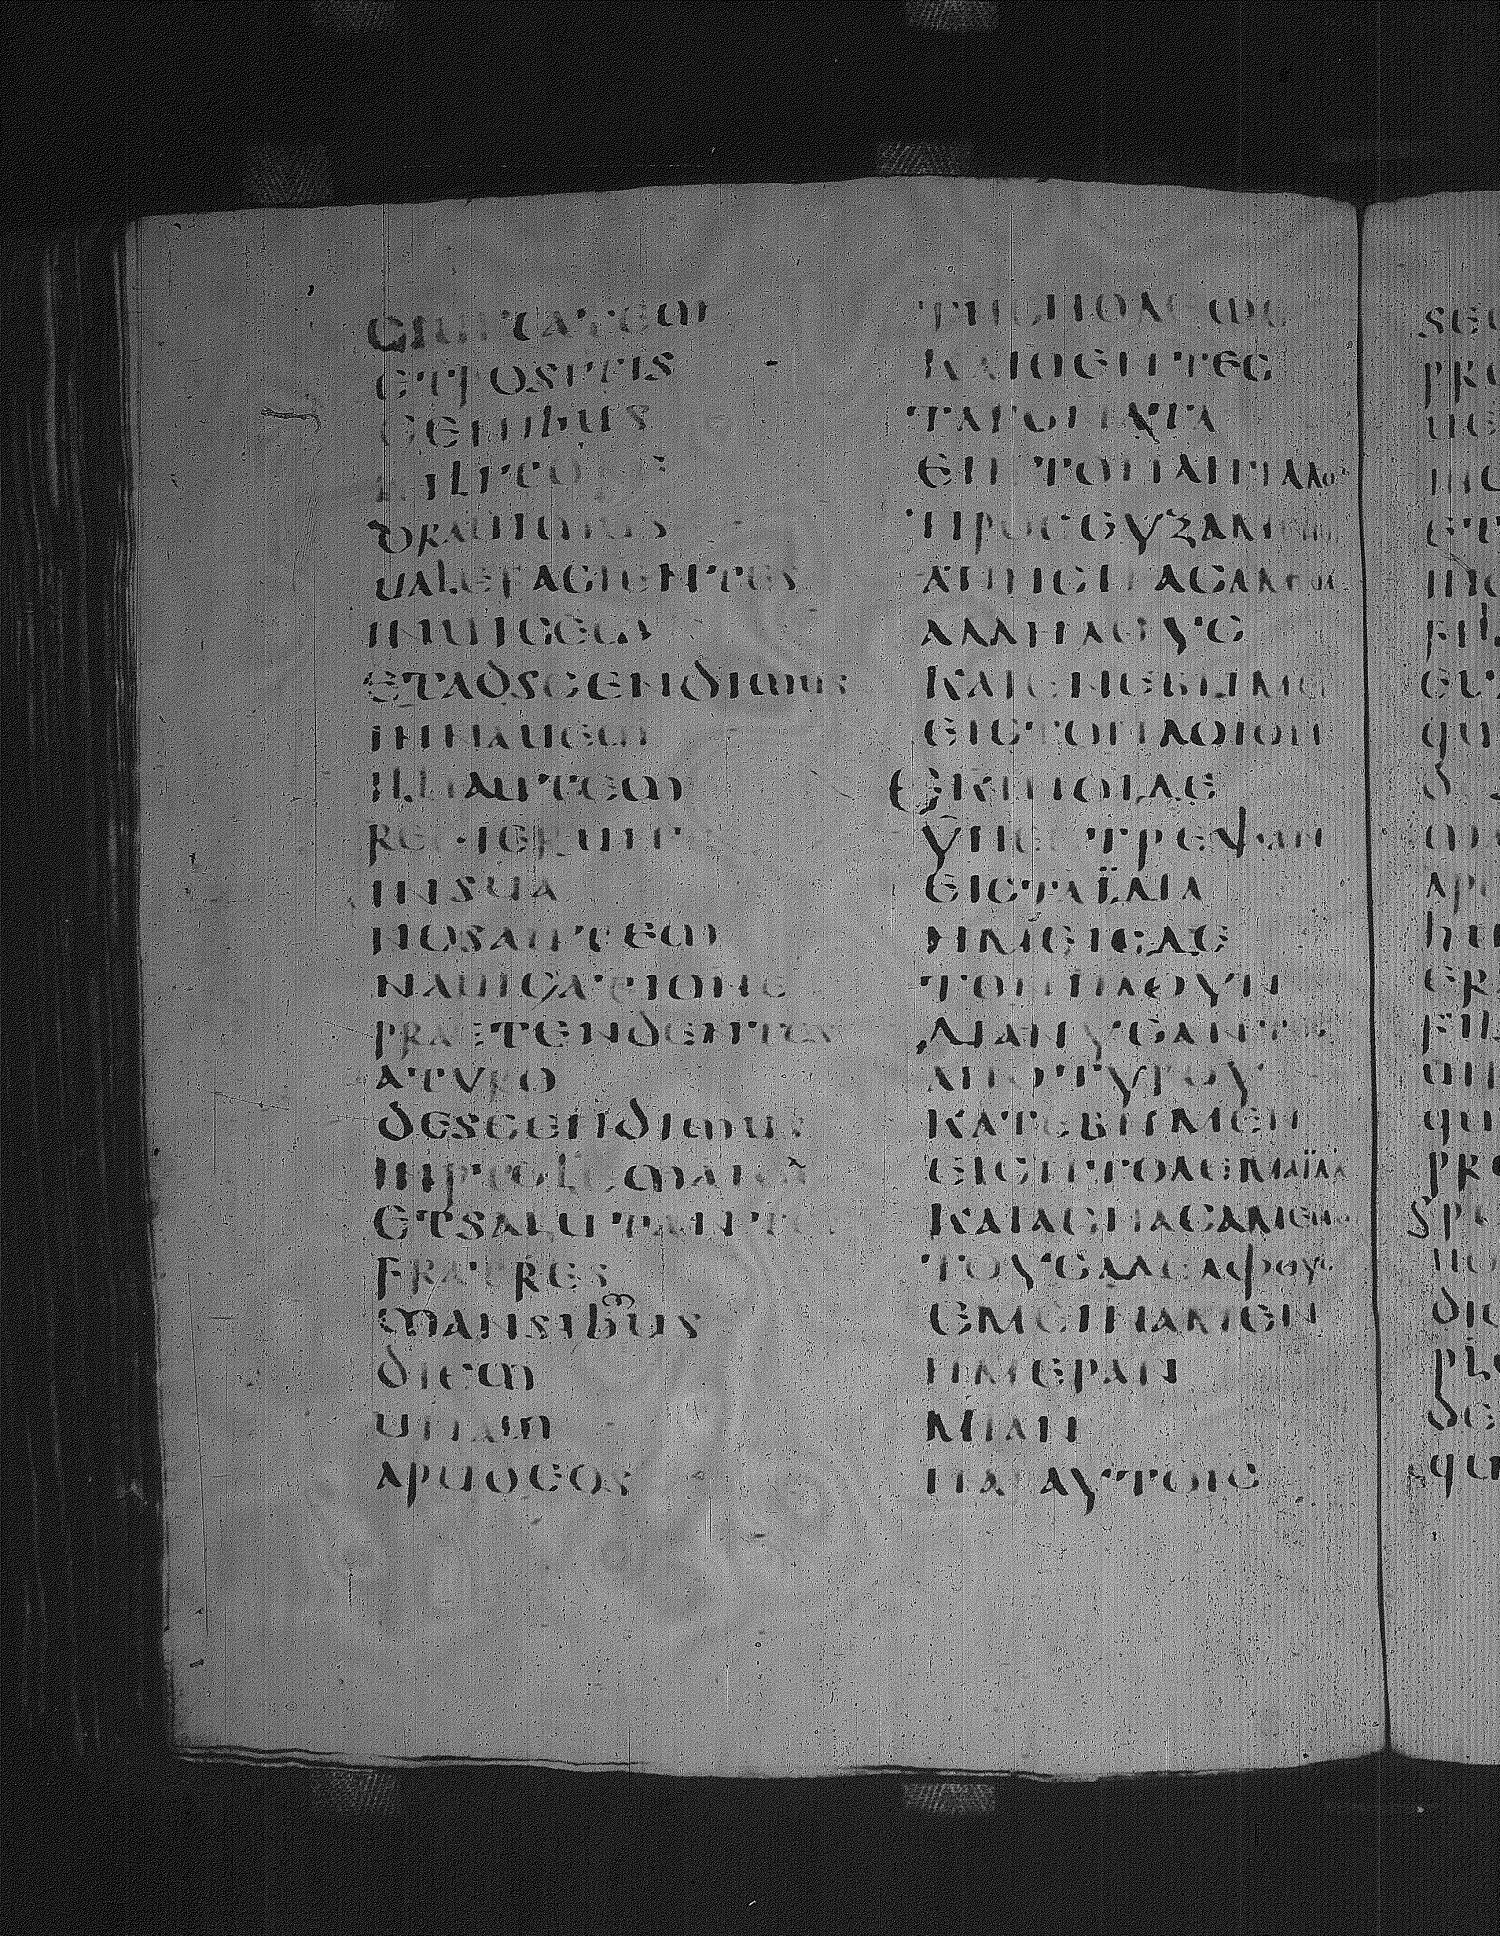 CIUITATEM
ETPOSITIS
GENIBUS
ORAUIMUS
UALEFACIENTES
INUICEM
ETADSCENDIMUS
INNAUEM
ILLIAUTEM
REDIERUNT
INSUA
NOSAUTEM
NAUIGATIONE
PRAETENDENTES
ATYRO
DESCENDIMUS
INPTOLEMAIDA
ETSALUTANTES
FRATRES
MANSIBUS
DIEM
UNAM
APUDEOS
ΤΗϹΠΟΛΕΩϹ
ΚΑΙΘΕΝΤΕϹ
ΤΑΓΟΝΑΤΑ
ΕΠΙΤΟΝΑΙΓΙΑΛΟΝ
ΠΡΟϹΕΥΞΑΜΕΝΟΙ
ΑΠΗϹΠΑϹΑΜΕΘΑ
ΑΛΛΗΛΟΥϹ
ΚΑΙΕΝΕΒΗΜΕΝ
ΕΙϹΤΟΠΛΟΙΟΝ
ΕΚΙΝΟΙΔΕ
ΥΠΕϹΤΡΕΨΑΝ
ΕΙϹΤΑΪΔΙΑ
ΗΜΕΙϹΔΕ
ΤΟΝΠΛΟΥΝ
ΔΙΑΝΥϹΑΝΤΕϹ
ΑΠΟΤΥΡΟΥ
ΚΑΤΕΒΗΜΕΝ
ΕΙϹΠΤΟΛΕΜΑΪΔΑ
ΚΑΙΑϹΠΑϹΑΜΕΝΟΙ
ΤΟΥϹΑΔΕΛΦΟΥϹ
ΕΜΕΙΝΑΜΕΝ
ΗΜΕΡΑΝ
ΜΙΑΝ
ΠΑΡΑΥΤΟΙϹ